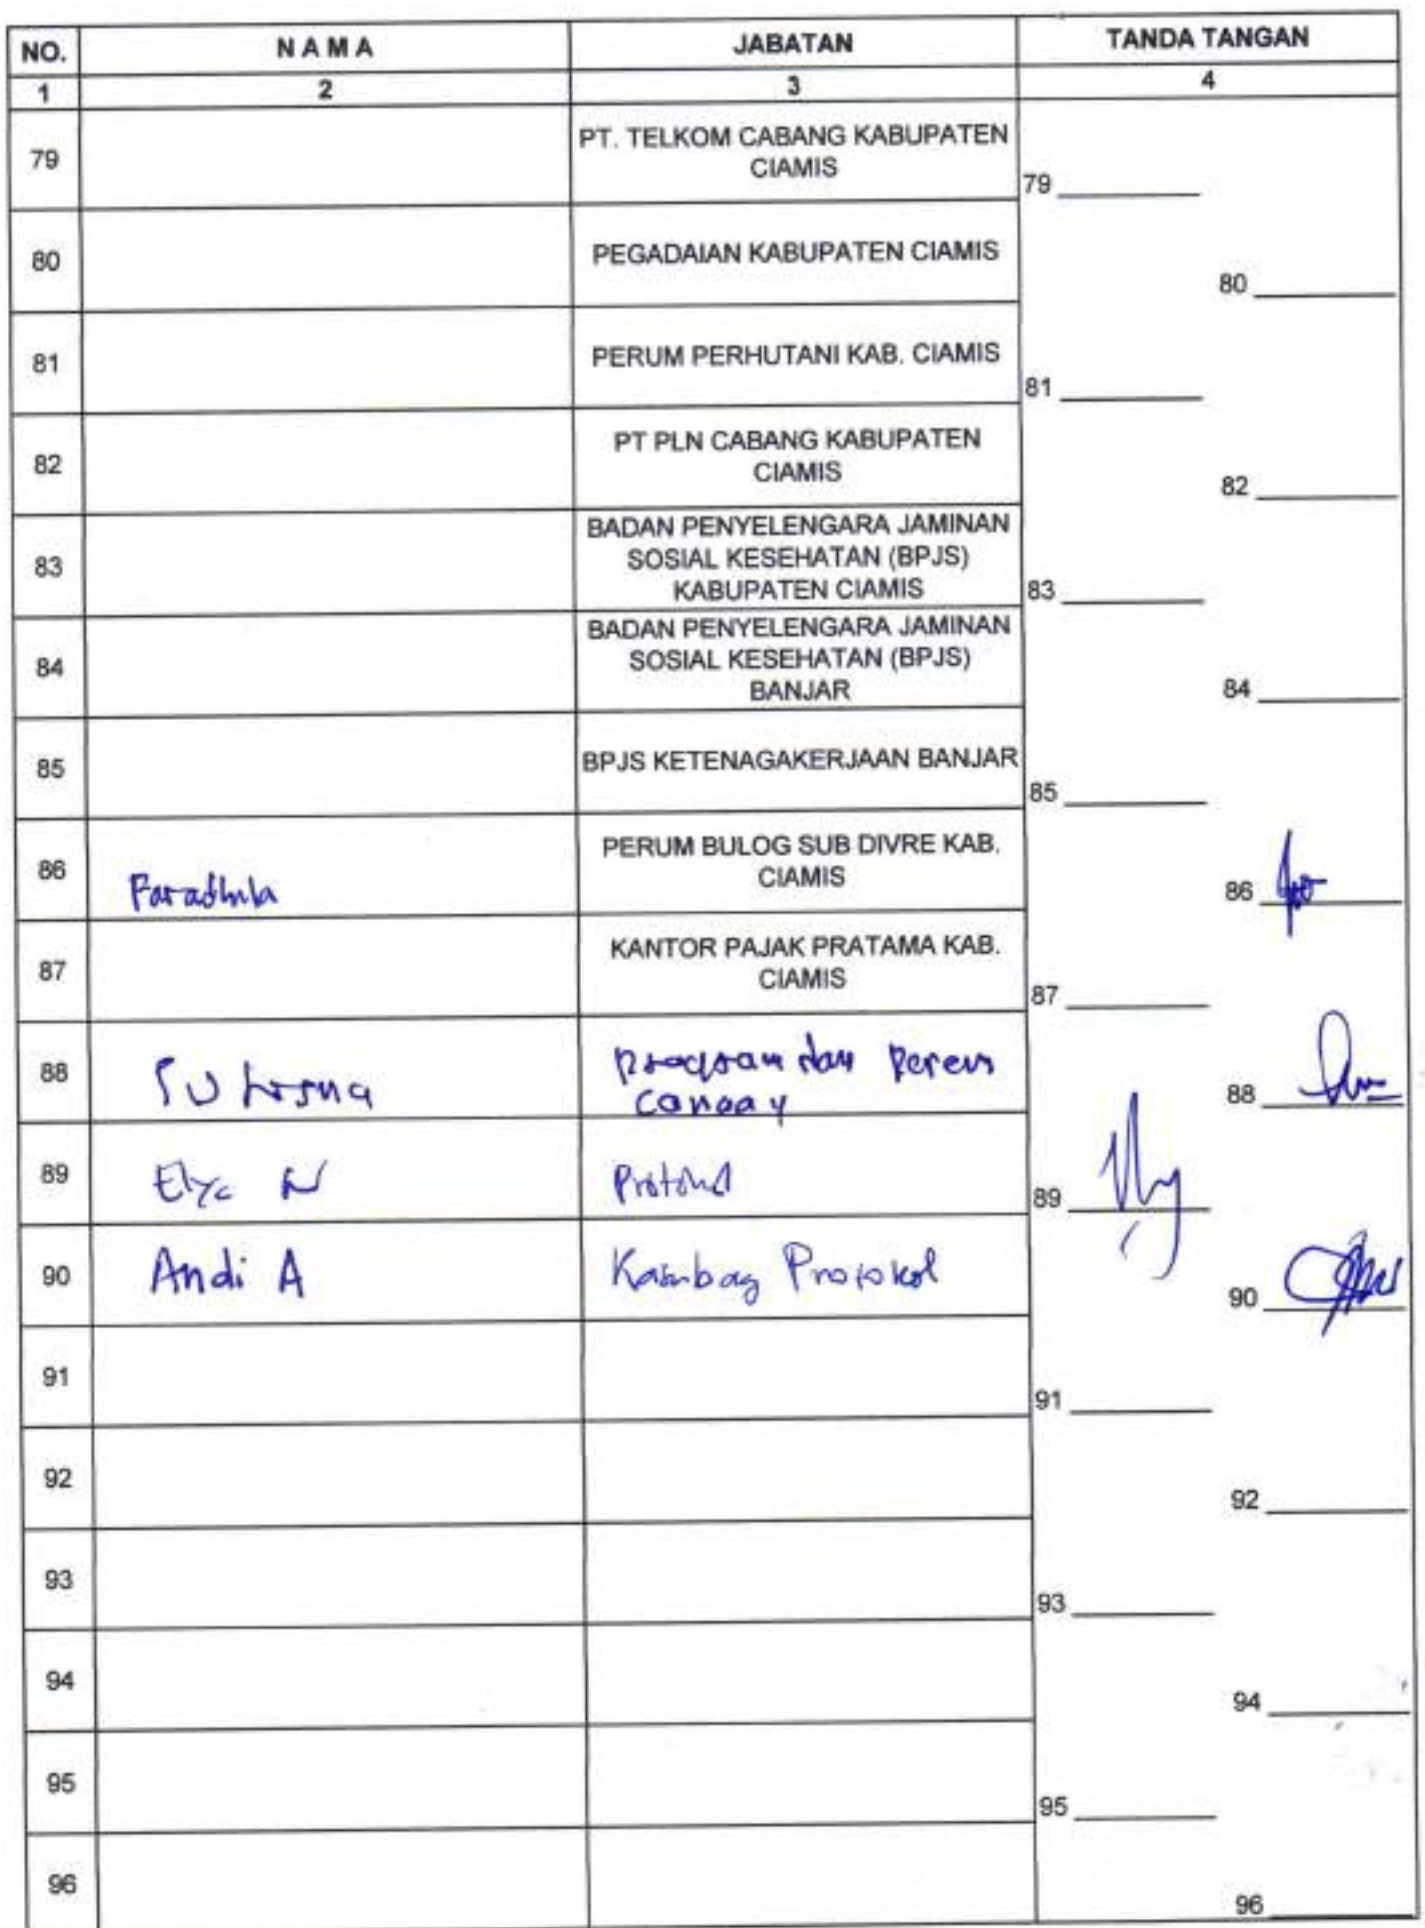 NO. NAMA JABATAN TANDA TANGAN
1 2 3 4
79 PT. TELKOM CABANG KABUPATEN
CIAMIS
79
80 PEGADAIAN KABUPATEN CIAMIS
80
81 PERUM PERHUTANI KAB. CIAMIS
81
82 PT PLN CABANG KABUPATEN
CIAMIS
82
83 BADAN PENYELENGARA JAMINAN
SOSIAL KESEHATAN (BPJS)
KABUPATEN CIAMIS
83
84 BADAN PENYELENGARA JAMINAN
SOSIAL KESEHATAN (BPJS)
BANJAR
84
85 BPJS KETENAGAKERJAAN BANJAR
85
86 Faradhila PERUM BULOG SUB DIVRE KAB.
CIAMIS
86
87 KANTOR PAJAK PRATAMA KAB.
CIAMIS
87
88 Sutisna Program dan Peren
canaay
88
89 N
89
90 Andi A Protokol
90
91
91
92
92
93
93
94
94
95
95
96
96